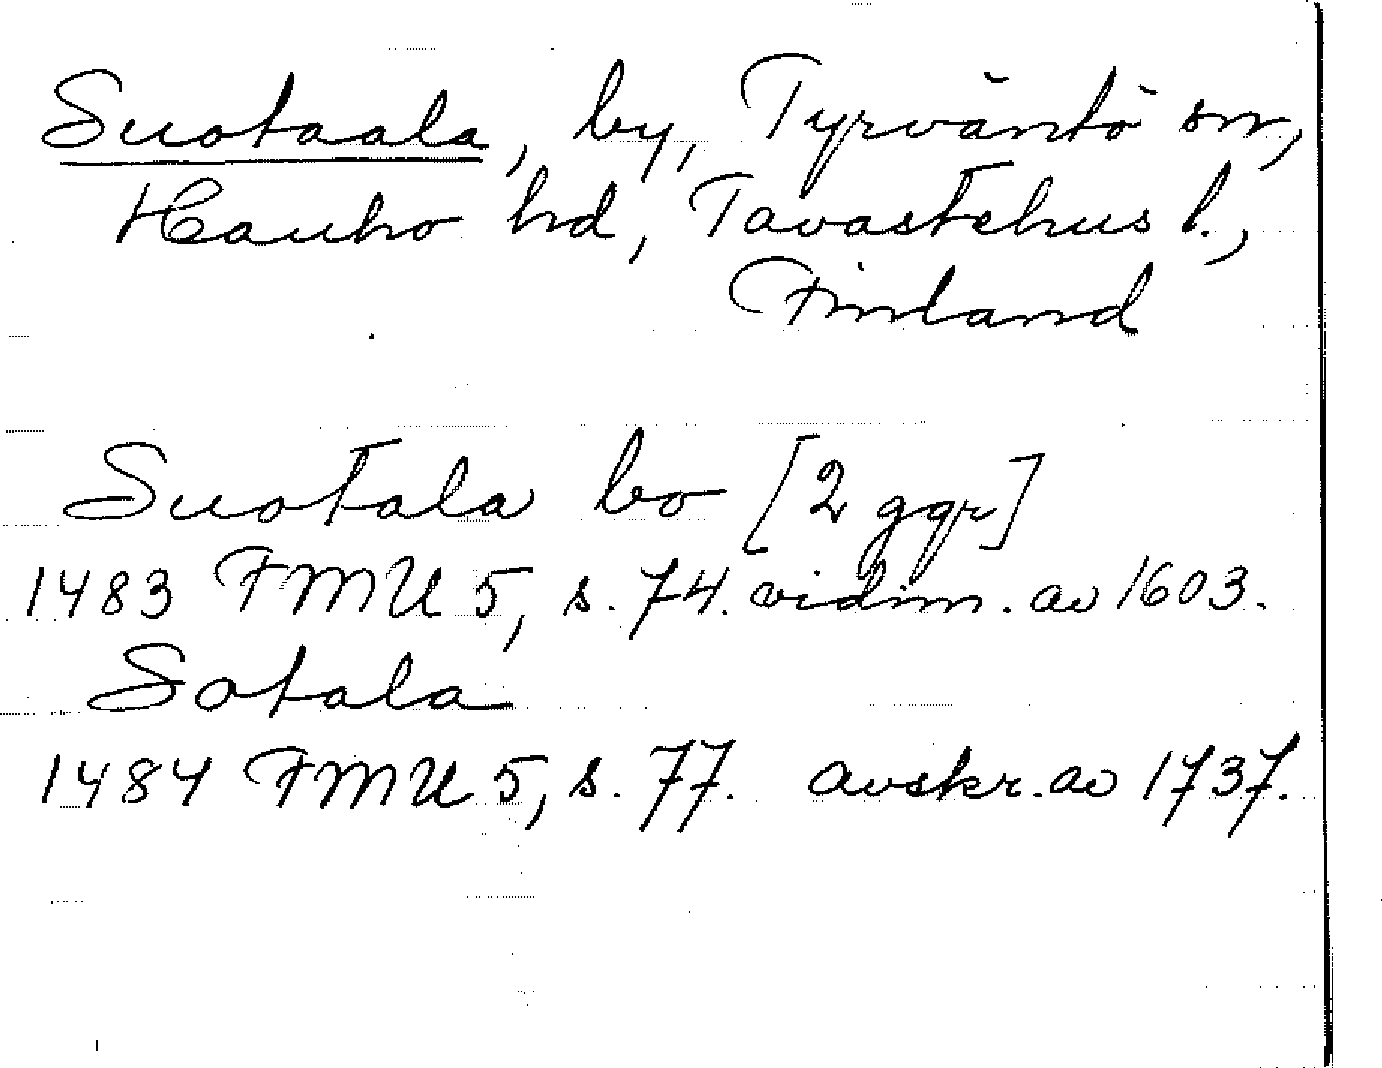 Suotaala, by, Tyrväntö sn,
Hauho hd, Tavastehus l.,
Finland
Suotala bo [2 ggr]
1483 FMU 5, s. 74. vidim. av 1603.
Sotala
1484 FMU 5, s. 77. avskr. av 1737.